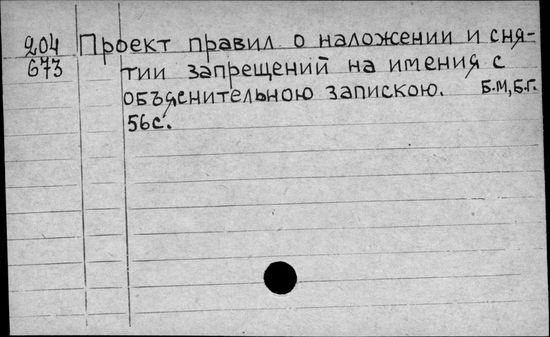 204 Проект правил о наложении и сня-
673 тии запрещений на имения с
объяснительною запискою. Б.М, Б.Г.
56с.